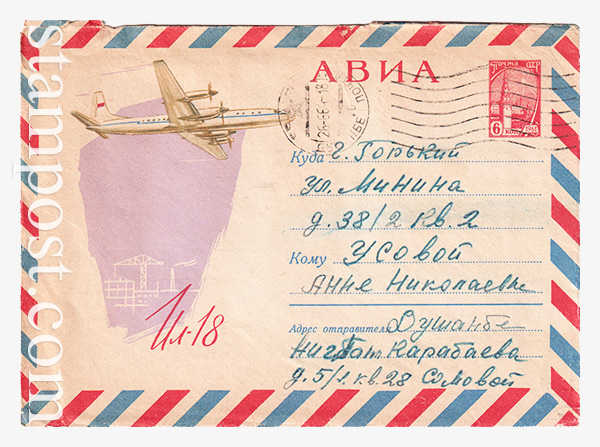 АВИА
ПОЧТА СССР
6 коп 1961
Куда г. Горький
ул. Минина
д. 38/2 кв. 2
Кому Усовой
Анне Николаевне
Адрес отправителя Душанбе
Карабаева
д. 5/1. кв. 28 Сомовой
Ил-18
stampost.com